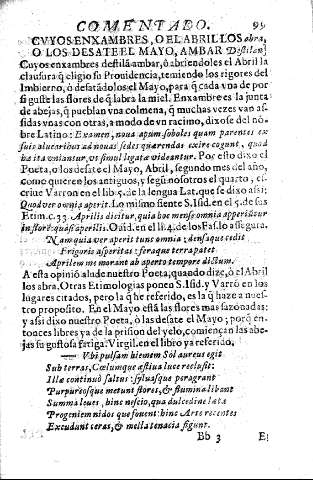 COMENTADO. 99
CVYOS ENXAMBRES, O EL ABRIL LOS abra,
O LOS DESATE EL MAYO, AMBAR Destilan
Cuyos enxambres destilã ambar, ò abriendoles el Abril la
clausura q̃ eligio su Prouidencia, temiendo los rigores del
Imbierno, ò desatãdolos el Mayo, para q̃ cada vna de por
si guste las flores de q̃ labra la miel. Enxambre es la junta
de abejas, q̃ pueblan vna colmena, q̃ muchas vezes van as-
sidas vnas con otras, a modo de vn racimo, dixose del nõ-
bre Latino: Examen, noua apum soboles quam parentes ex
suis aluearibus ad nouas sedes quærendas exire cogunt, quod
ha ita vniantur, vt simul legatæ videantur. Por esto dixo el
Poeta, o los desate el Mayo, Abril, segundo mes del año,
como quieren los antiguos, y segũ nosotros el quarto, es-
criue Varron en el lib. 5. de la lengua Lat. que se dixo assi:
Quod ver omnia aperit. Lo mismo siente S. Isid. en el 5. de sus
Etim. c. 33. Aprilis dicitur, quia hoc mense omnia apperiũtur
in florẽ: quasi aperilis. Ouid. en el li. 4. de los Fas. lo assegura.
Nam quia ver aperit tunc omnia: densaque cedit
Frigoris asperitas: feraque terra patet
Aprilem memorant ab aperto tempore dictum.
A esta opiniõ alude nuestro Poeta, quando dize, ò el Abril
los abra. Otras Etimologias ponen S. Isid. y Varrõ en los
lugares citados, pero la q̃ he referido, es la q̃ haze a nues-
tro proposito. En el Mayo està las flores mas sazonadas:
y assi dixo nuestro Poeta, ò las desate el Mayo; porq̃ en-
tonces libres ya de la prision del yelo, comiençan las abe-
jas su gustosa fatiga. Virgil. en el libro ya referido.
— Vbi pulsam hiemem Sol aureus egit
Sub terras, Cœlumque æstiua luce reclusit:
Illæ continuò saltus: syluasque peragrant
Purpureosque metunt flores, & flumina libant
Summa leues, hinc nescio, qua dulcedine lætæ
Progeniem nidos que fouent: hinc Arte recentes
Excudunt ceras, & mella tenacia figunt.
Bb 3 E